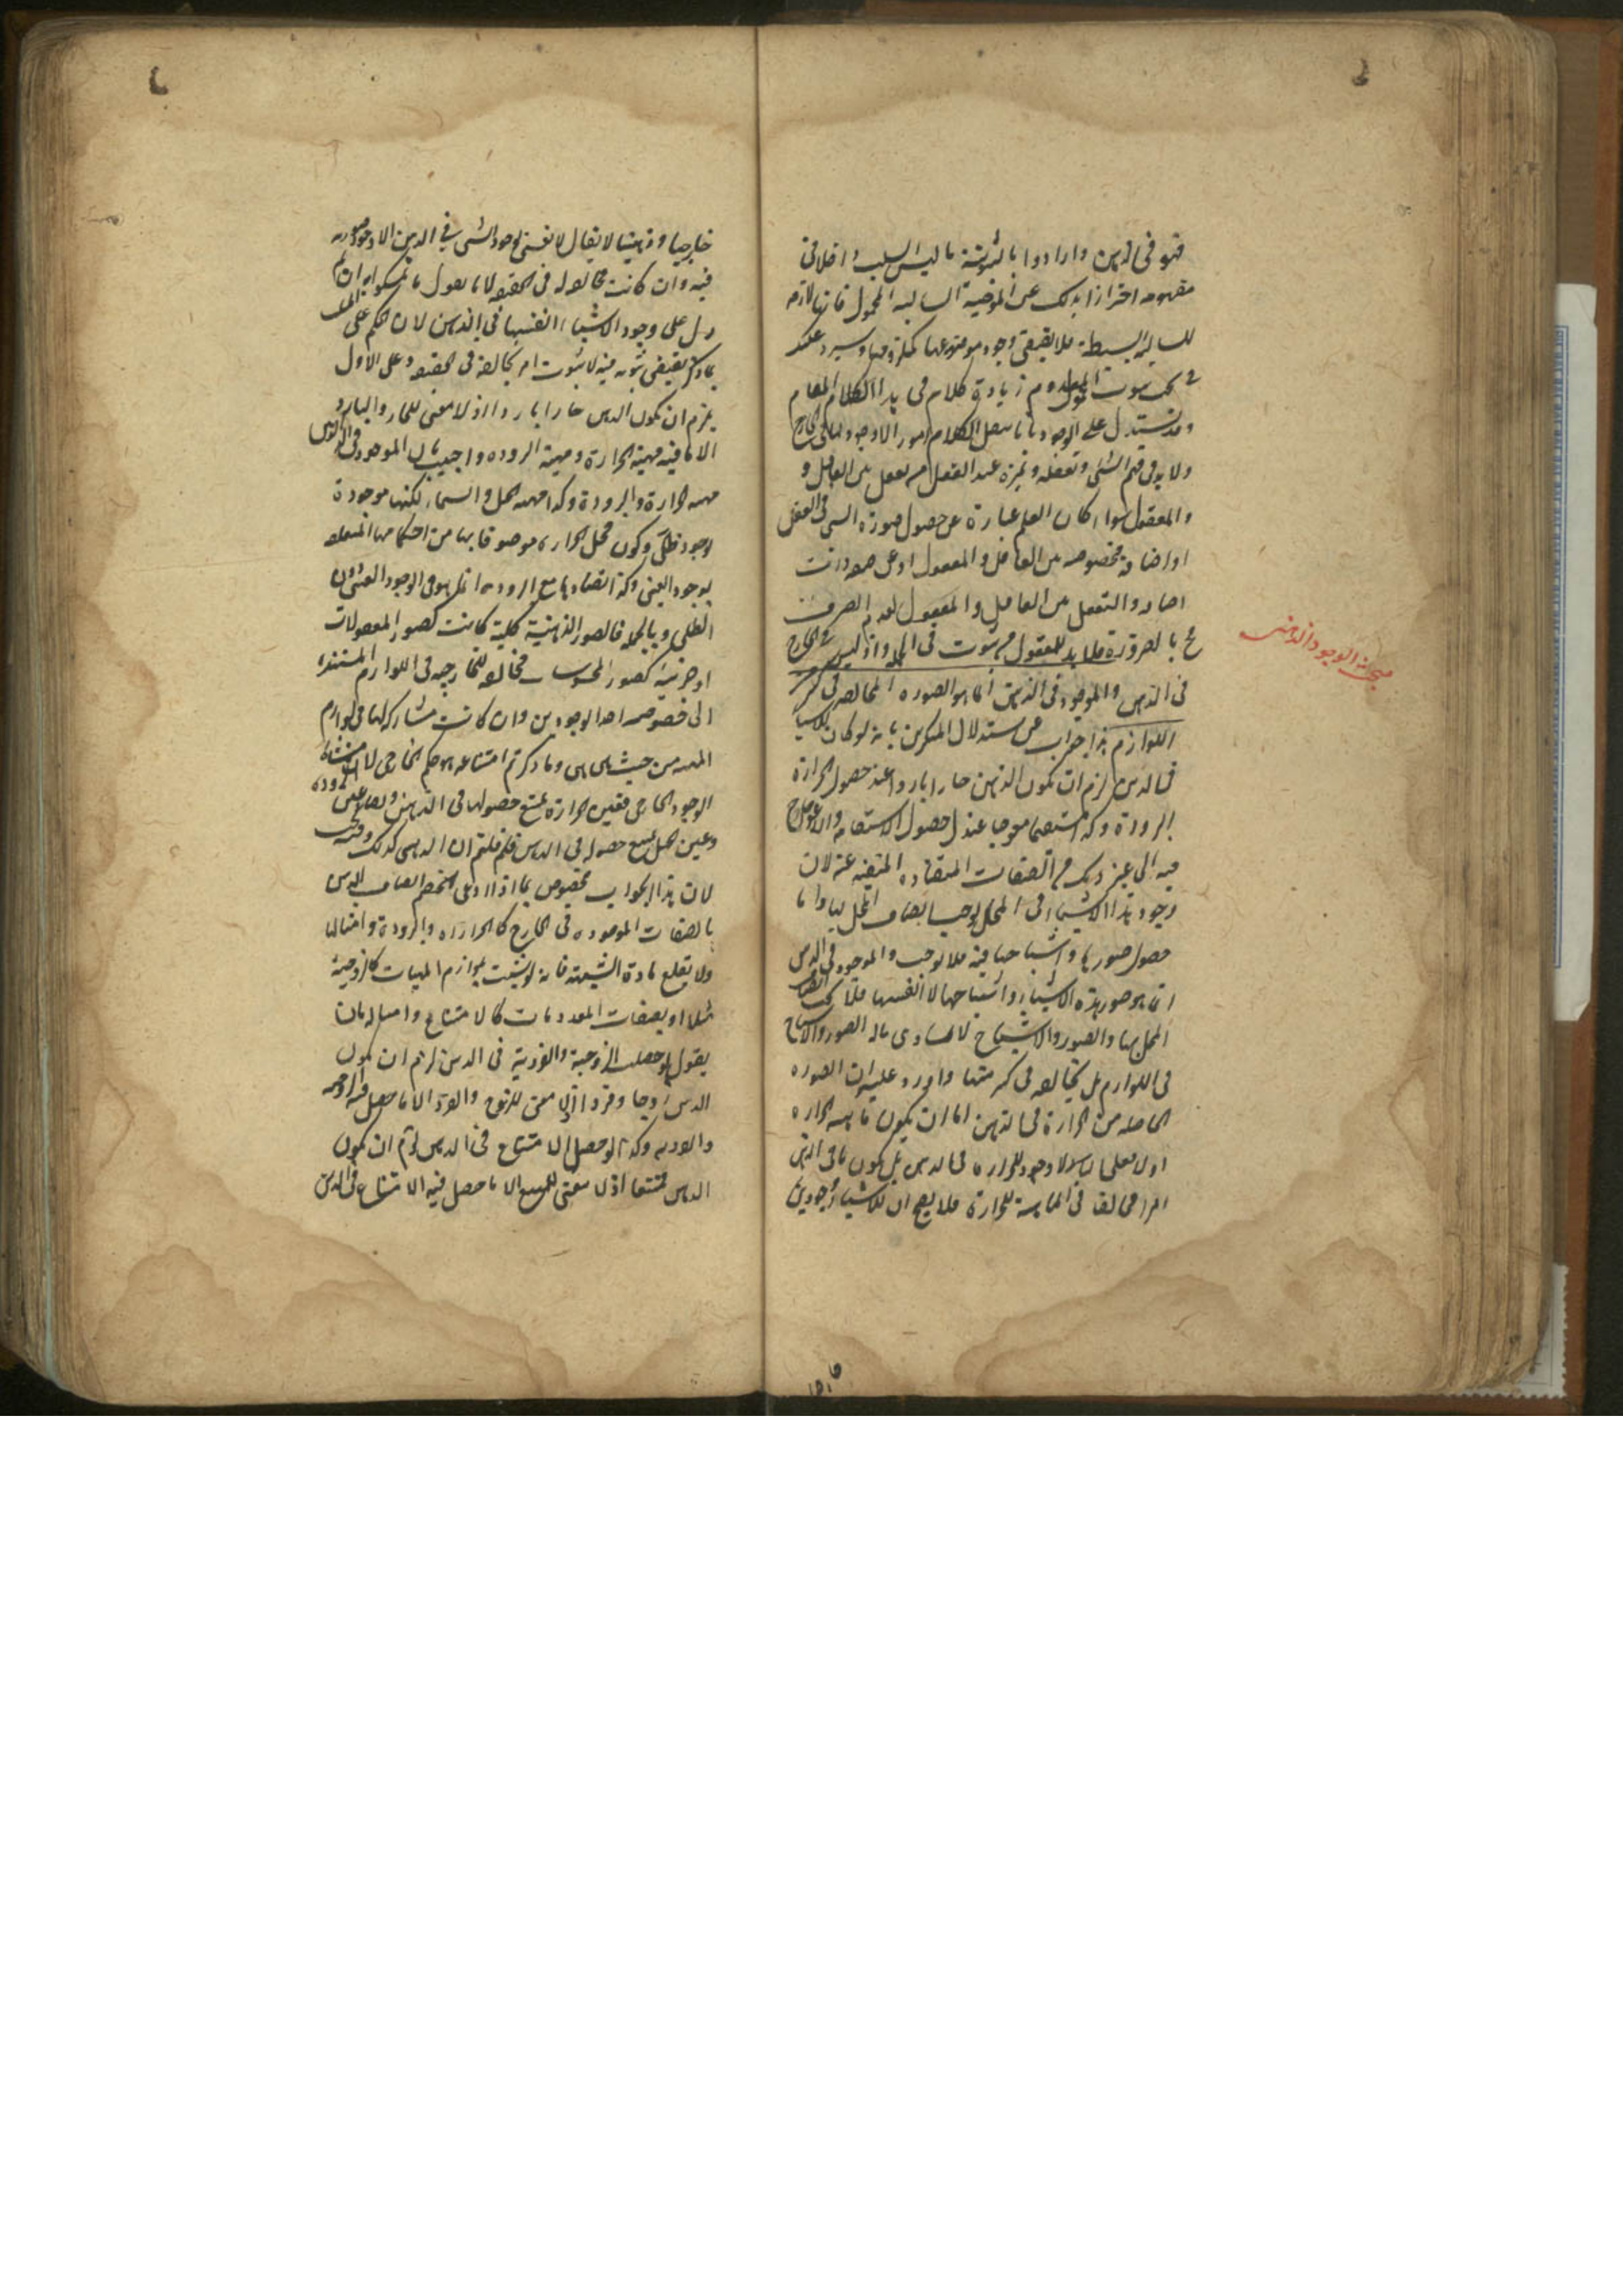 فهو في الذهن وارادوا بالثبوتية ما ليس السلب داخلا في
مفهومه احترازا بذلك عن الموجبة السالبة المحمول فانها لازمة
للسالبة البسيطة فلا يقتضي وجود موضوعها كملزومها وسيرد عليك
في بحث ثبوت المعدوم زيادة كلام في هذا المقام
وقد يستدل على الوجود
ولا بد في فهم الشئ وتعقله وتميزه عند العقل من تعلق بين العاقل و
والمعقول سواء كان العلم عبارة عن حصول صورة الشئ في العقل
او اضافة مخصوصة بين العاقل والمعقول او عن صفة ذات
اضافة والتعلق بين العاقل والمعدوم الصرف
مح بالضرورة فلا بد للمعقول من ثبوت في الجملة واذ ليس في الخارج
مبحث الوجود الذهنى
ففى الذهن والموجود في الذهن انما هو الصورة المخالفة في كثير
اللوازم هذا جواب عن استدلال المنكرين بانه لو كان للاشيا
في الذهن لزم ان يكون الذهن حارا باردا عند حصول الحرارة
البرودة وكذا مستقيما معوجا عند حصول الاستقامة والاعوجاج
فيه الى غير ذلك من الصفات المتضادة المنفية عنه لان
وجود هذه الاشياء في المحل يوجب اتصاف المحل بها واما
حصول صورها واشباحها فيه فلا يوجب والموجود في الذهن
انما هو صور هذه الاشياء واشباحها لا انفسها فلا يجب اتصاف
المحل بها والصور والاشباح لا تساوي ماله الصور والاشباح
في اللوازم بل تخالفه في كثير منها واورد عليه ان الصورة
الحاصلة من الحرارة في الذهن اما ان يكون ماهية الحرارة
او لا فعلى الثاني لا وجود للحرارة في الذهن بل يكون ما في الذهن
امرا مخالفا في الماهية للحرارة فلا يصح ان للاشياء وجودين
خارجيا وذهنيا لا يقال لا نعني لوجود الشئ في الذهن الا وجود صورته
فيه وان كانت مخالفة له في الحقيقة لانا نقول ما تمسكوا به ان تم
دل على وجود الاشياء انفسها في الذهن لان الحكم على الشئ
بما ذكر يقتضى ثبوته فيه لا ثبوت امر يخالفه في الحقيقة وعلى الاول
يلزم ان يكون الذهن حارا باردا اذ لا معنى للحار والبارد
الا ما فيه مهية الحرارة ومهية البرودة واجيب بان الموجود في الذهن
مهية الحرارة والبرودة وكذا مهية الجبل والسماء لكنها موجودة
بوجود ظلي وكون محل الحرارة موصوفا بها من احكامها المتعلقة
بوجود العيني وكذا تضادها مع البرودة انما هو في الوجود العيني دون
الظلي وبالجملة فالصور الذهنية كلية كانت كصور المعقولات
او جزئية كصور المحسوسات مخالفة للخارجية في اللوازم المستندة
الى خصوصية احد الوجودين وان كانت مشاركة لها في لوازم
المهية من حيث هي هي وما ذكرتم امتناعه هو حكم الخارجي لان منشاه
الوجود الخارجي فعين الحرارة يمتنع حصولها في الذهن
وعين الجبل يمتنع حصوله في الذهن فلم قلتم ان الذهني كذلك وفيه بحث
لان هذا الجواب مخصوص بما اذا ادعى الخصم اتصاف الذهن
بالصفات الموجودة في الخارج كالحرارة والبرودة وامثالها
ولا يقلع مادة الشبهة فانه لو تشبث بلوازم المهيات كالزوجية
مثلا او بصفات المعدومات كالامتناع وامثاله بان
يقول لو حصلت الزوجية والفردية في الذهن لزم ان يكون
الذهن زوجا وفردا اذ لا معنى للزوج والفرد الا ما حصل فيه الزوجية
والفردية وكذا لو حصل الامتناع في الذهن لزم ان يكون
الذهن ممتنعا اذ لا معنى للممتنع الا ما حصل فيه الامتناع في الذهن